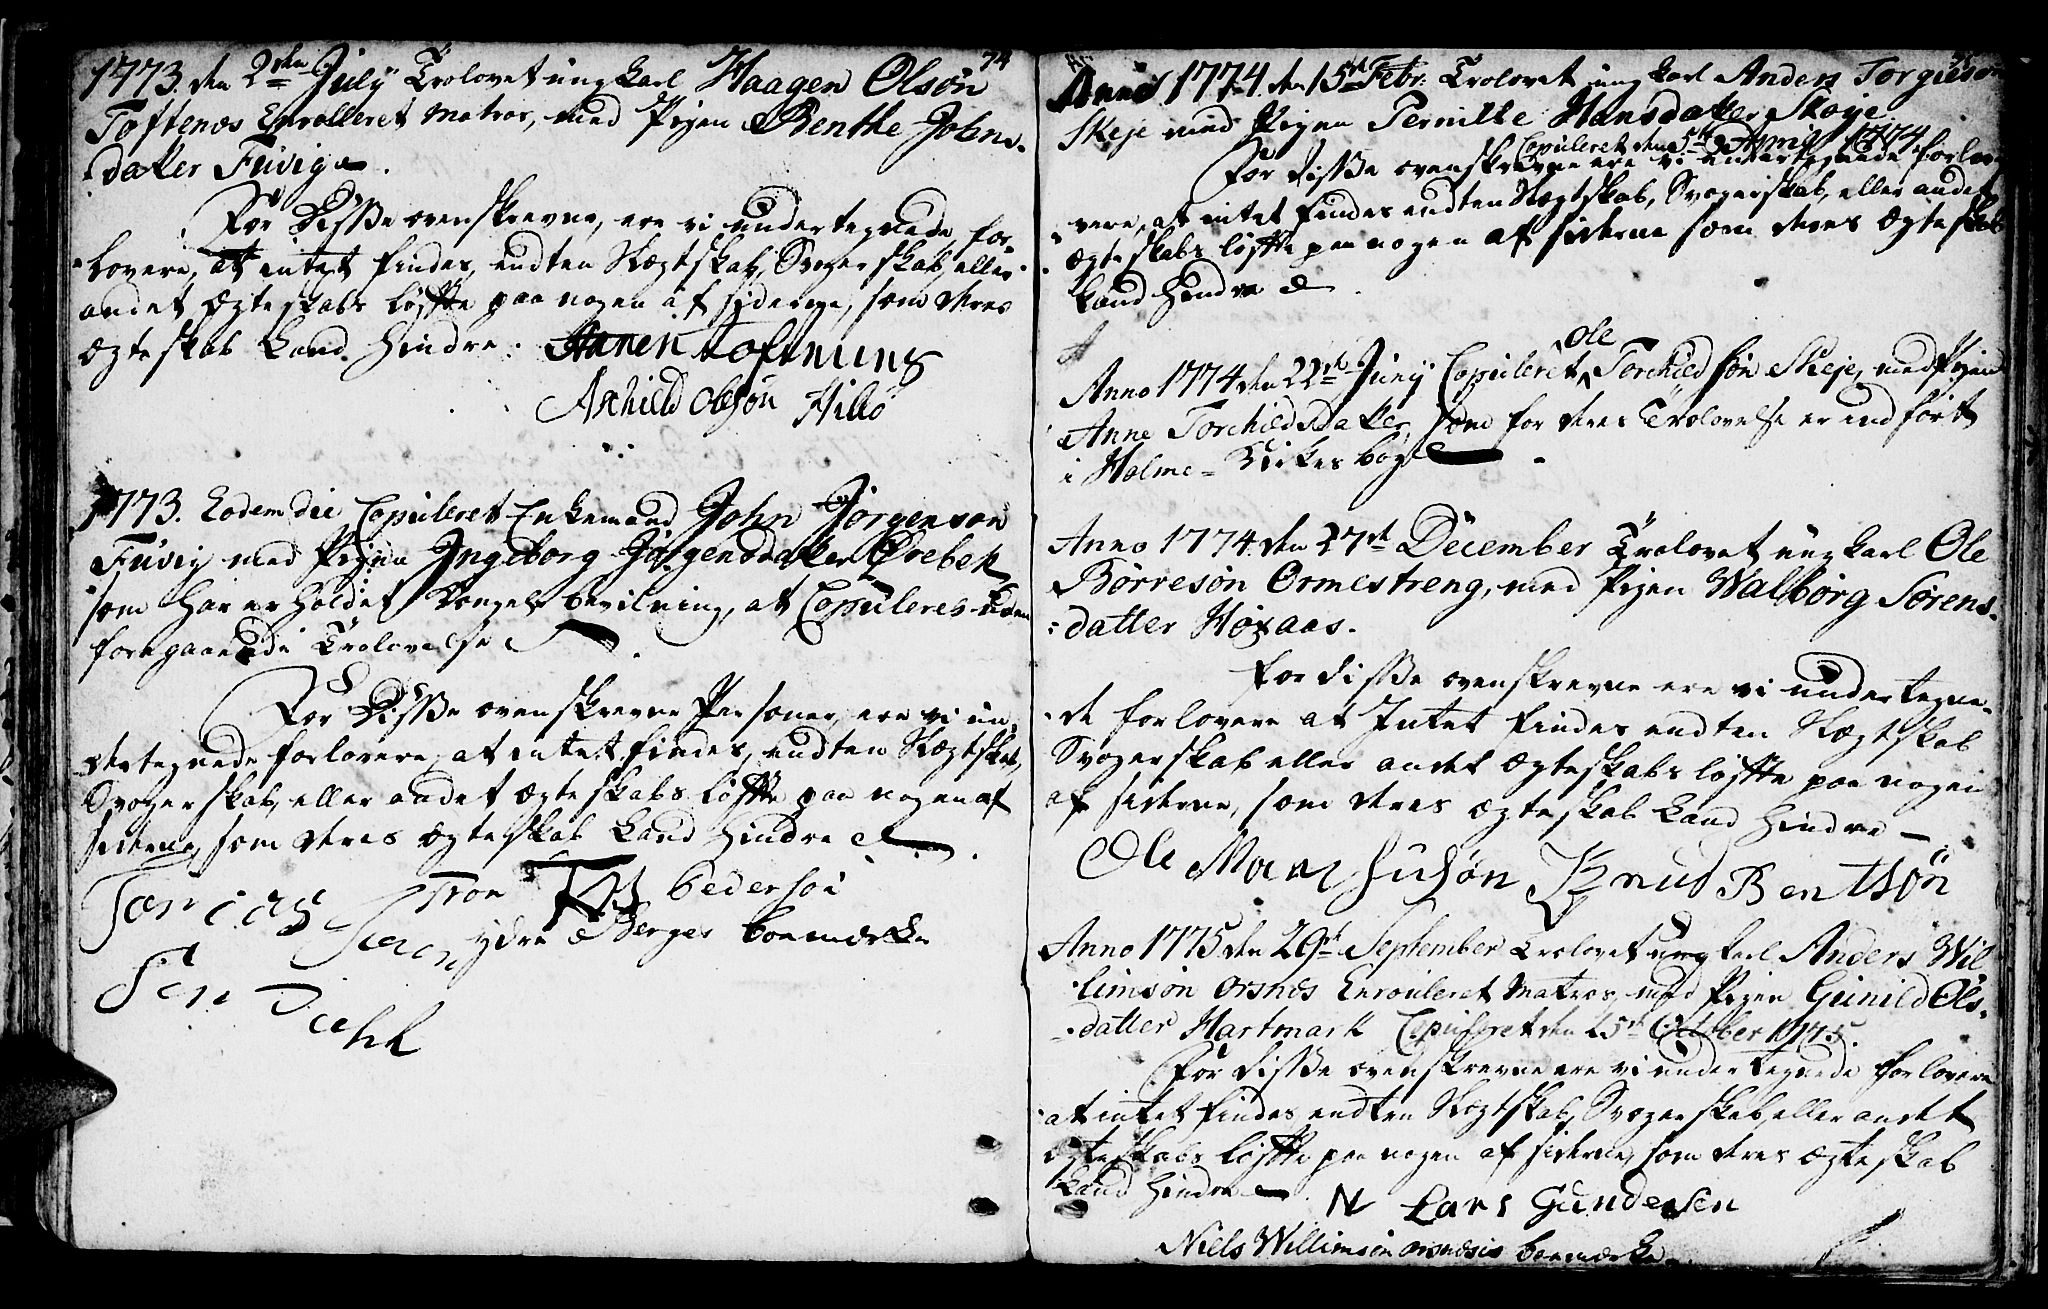 74
1773. den 2den July Trolovet ungkarl Haagen Olsøn
Toftenes Enrolleret Matros, med Pigen Benthe Johns-
datter Fuvig
For Disse ovenskrevne, ere vi undertegnede for-
lovere, at intet findes, endten Slegtskab, Svogerskab, eller
andet Ægteskabs løfte paa nogen af siderne, som deres
Ægteskab kand hindre:
Achield Olsøn Hillø
1773. Eodem die Copuleret Enkemand John Jørgensøn
Fuvig med Pigen Ingeborg Jørgensdatter Ørebek,
som har erholdet Konge bevilning, at Copuleres uden
foregaaende Trolovelse
For Disse ovenskrevne Personer, ere vi un-
dertegnede forlovere, at intet findes, endten Slegtskab,
Svogerskab, eller andet Ægteskabs løfte paa nogen af
siderne, som deres Ægteskab kand hindre
Tron Pedersøn
ydre Berges boemerke
Anno 1774. den 15de Febr. Trolovet ungkarl Anders Torgiesøn
Skeje med Pigen Pernille Hansdatter Skeje
Copuleret den 5te April 1774
For disse ovenskrevne ere vi undertegnede forlo-
vere, at intet findes endten Slegtskab, Svogerskab, eller andet
Ægteskabs løfte paa nogen af siderne som deres Ægteskab
kand hindre
Ole
Anno 1774 den 22de Juny Copuleret Torchield søn Skeje, med Pigen
Anne Torchieldsdatter, som for deres Trolovelse er indført
i Halme-Kirkes bog
Anno 1774 den 27de December Trolovet ungkarl Ole
Børresøn Ormestreng, med Pigen Walborg Sørens-
datter Høyaas.
For disse ovenskrevne ere vi undertegne-
de forlovere at Intet findes endten Slegtskab
Svogerskab eller andet Ægteskabs løfte paa nogen
af siderne, som deres Ægteskab kand hindre
Ole Knud Bentsøn
Anno 1775 den 29de September Trolovet ungkarl Anders Wil-
limsøn Orsnes Enroulleret Matros, med Pigen Gunild Ols-
datter Hartmark Copuleret den 25de October 1775.
For disse ovenskrevne ere vi undertegnede forlovere
at intet findes endten Slegtskab, Svogerskab, eller andet
Ægteskabs løfte paa nogen af siderne, som deres Ægteskab
kand hindre
Lars Gundersen
Niels Willimsøn Orsnesis boemerke